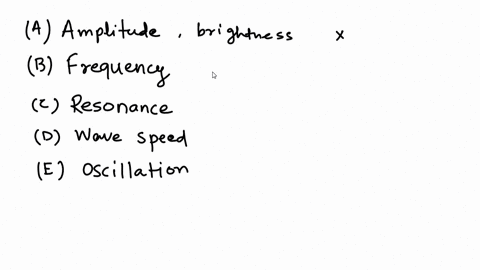 (A) Amplitude, brightness x
(B) Frequency
(C) Resonance
(D) Wave speed
(E) Oscillation